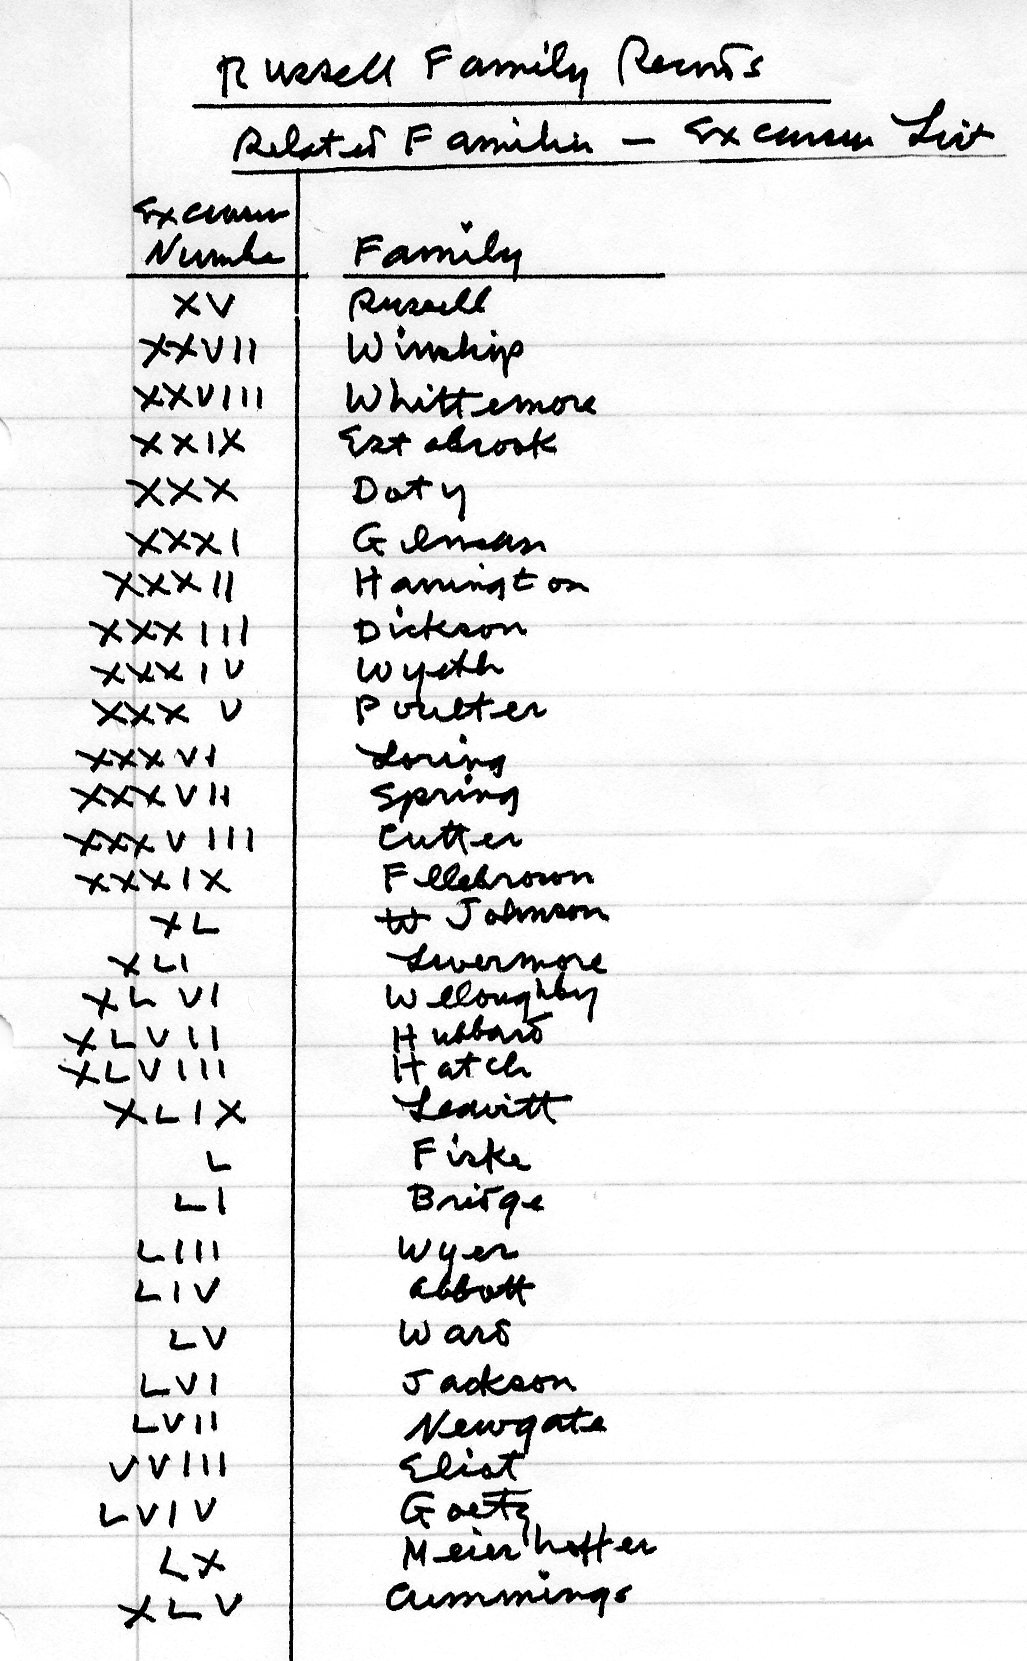 Russell Family Records
Related Families — Excursus List
Excursus
Number Family
XV Russell
XXVII Winship
XXVIII Whittemore
XXIX Estabrook
XXX Doty
XXXI Gilman
XXXII Harrington
XXXIII Dickson
XXXIV Wyeth
XXXV Poulter
XXXVI Loring
XXXVII Spring
XXXVIII Cutter
XXXIX Fillebrown
XL W Johnson
XLI Livermore
XLVI Willoughby
XLVII Hubbard
XLVIII Hatch
XLIX Leavitt
L Fiske
LI Bridge
LIII Wyer
LIV Abbott
LV Ward
LVI Jackson
LVII Newgate
VVIII Eliot
LVIV Goetz
LX Meierhoffer
XLV Cummings